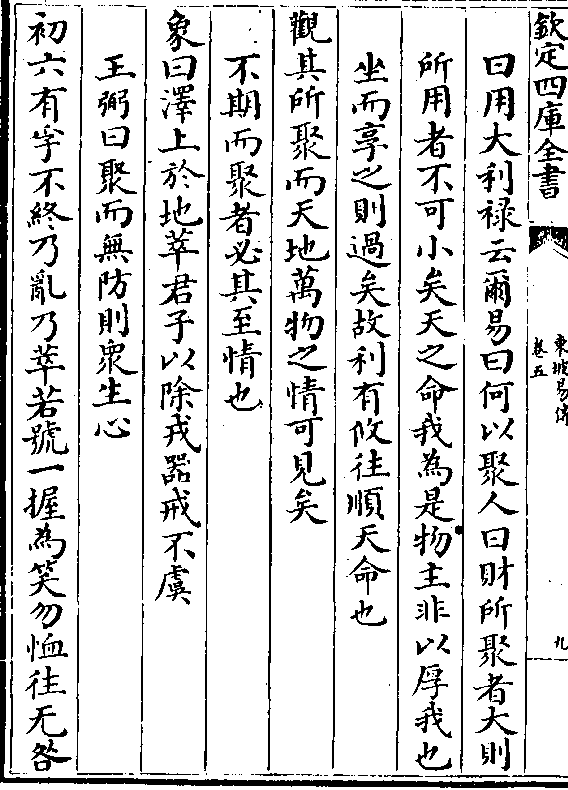 欽定四庫全書
東坡易傳
卷五
九
曰用大利禄云爾易曰何以聚人曰財所聚者大則
所用者不可小矣天之命我為是物主非以厚我也
坐而享之則過矣故利有攸往順天命也
觀其所聚而天地萬物之情可見矣
不期而聚者必其至情也
象曰澤上於地萃君子以除戎器戒不虞
王弼曰聚而無防則衆生心
初六有孚不終乃亂乃萃若號一握為笑勿恤往无咎